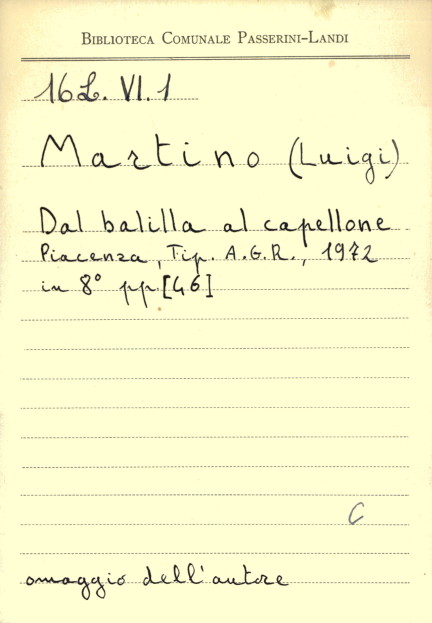 BIBLIOTECA COMUNALE PASSERINI-LANDI
16L. VI.1
Martino (Luigi)
Dal balilla al capellone
Piacenza, Tip. A.G.R., 1972
in 8° pp. [46]
C
omaggio dell'autore